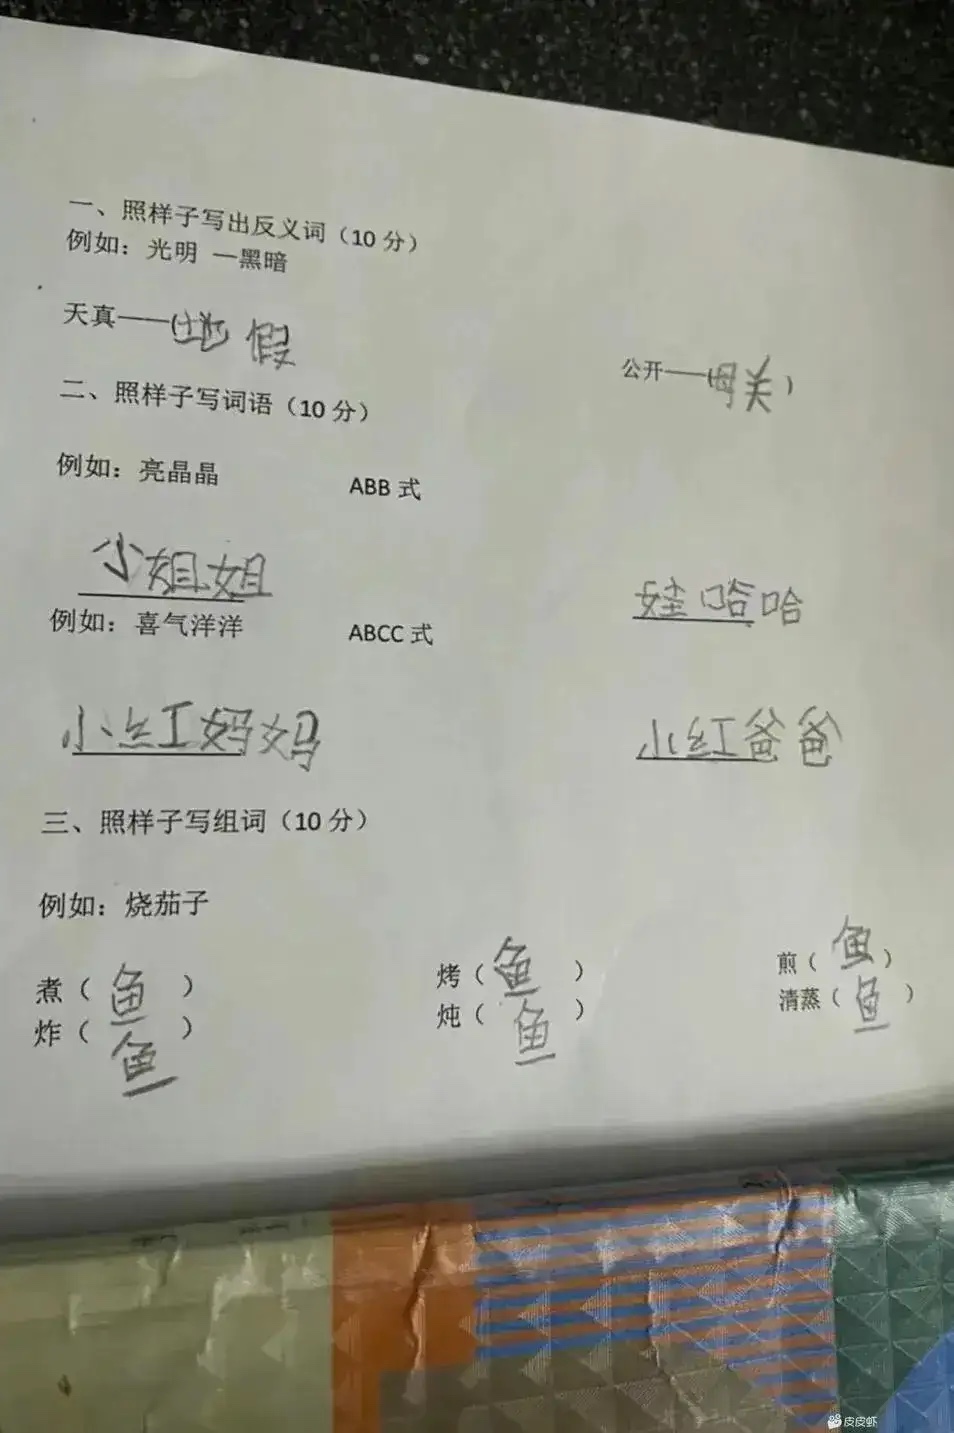 一、照样子写出反义词（10 分）
例如：光明 一黑暗
天真——(地 假
公开——(母关）
二、照样子写词语（10 分）
例如：亮晶晶 ABB 式
小姐姐 娃哈哈
例如：喜气洋洋 ABCC 式
小红妈妈 小红爸爸
三、照样子写组词（10 分）
例如：烧茄子
煮（鱼） 烤（鱼） 煎（鱼）
炸（鱼） 炖（鱼） 清蒸（鱼）
皮皮虾